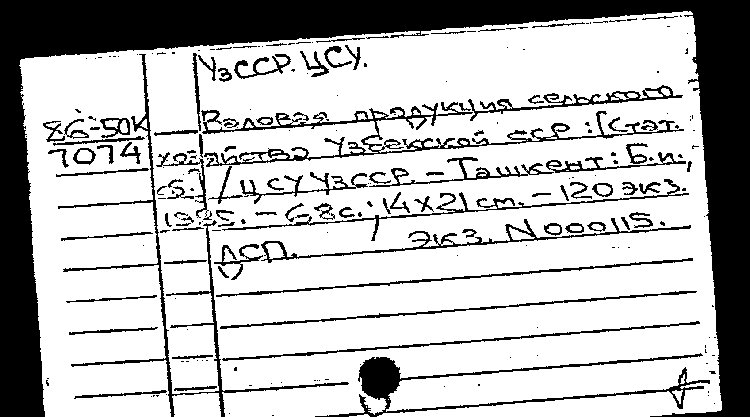 УзССР. ЦСУ.
86-50К
7074
Валовая продукция сельского
хозяйства Узбекской ССР : [Стат.
сб.] / ЦСУ УзССР. – Ташкент : Б.и.,
1985. – 68 с. ; 14 х 21 cm. – 120 экз.
ДСП. / Экз. N 000115.